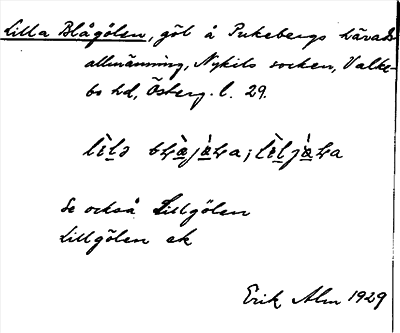 Lilla Blågölen, göl å Pukebergs härads
allmänning, Nykils socken, Valke-
bo hd, Österg. l. 29.
Se också Lillgölen
Lillgölen ek
Erik Alm 1929